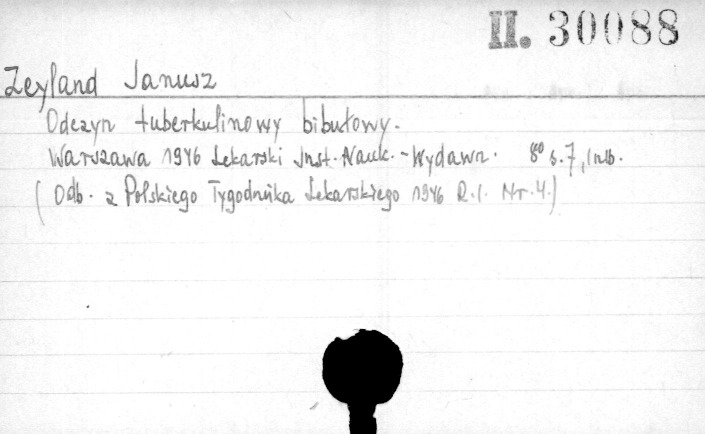 II. 30088
Zeyland Janusz
Odczyn tuberkulinowy bibułowy.
Warszawa 1946 Lekarski Inst. Nauk.-Wydawn. 8° s. 7, 1 nlb.
(Odb. z Polskiego Tygodnika Lekarskiego 1946 R.I. Nr. 4.)